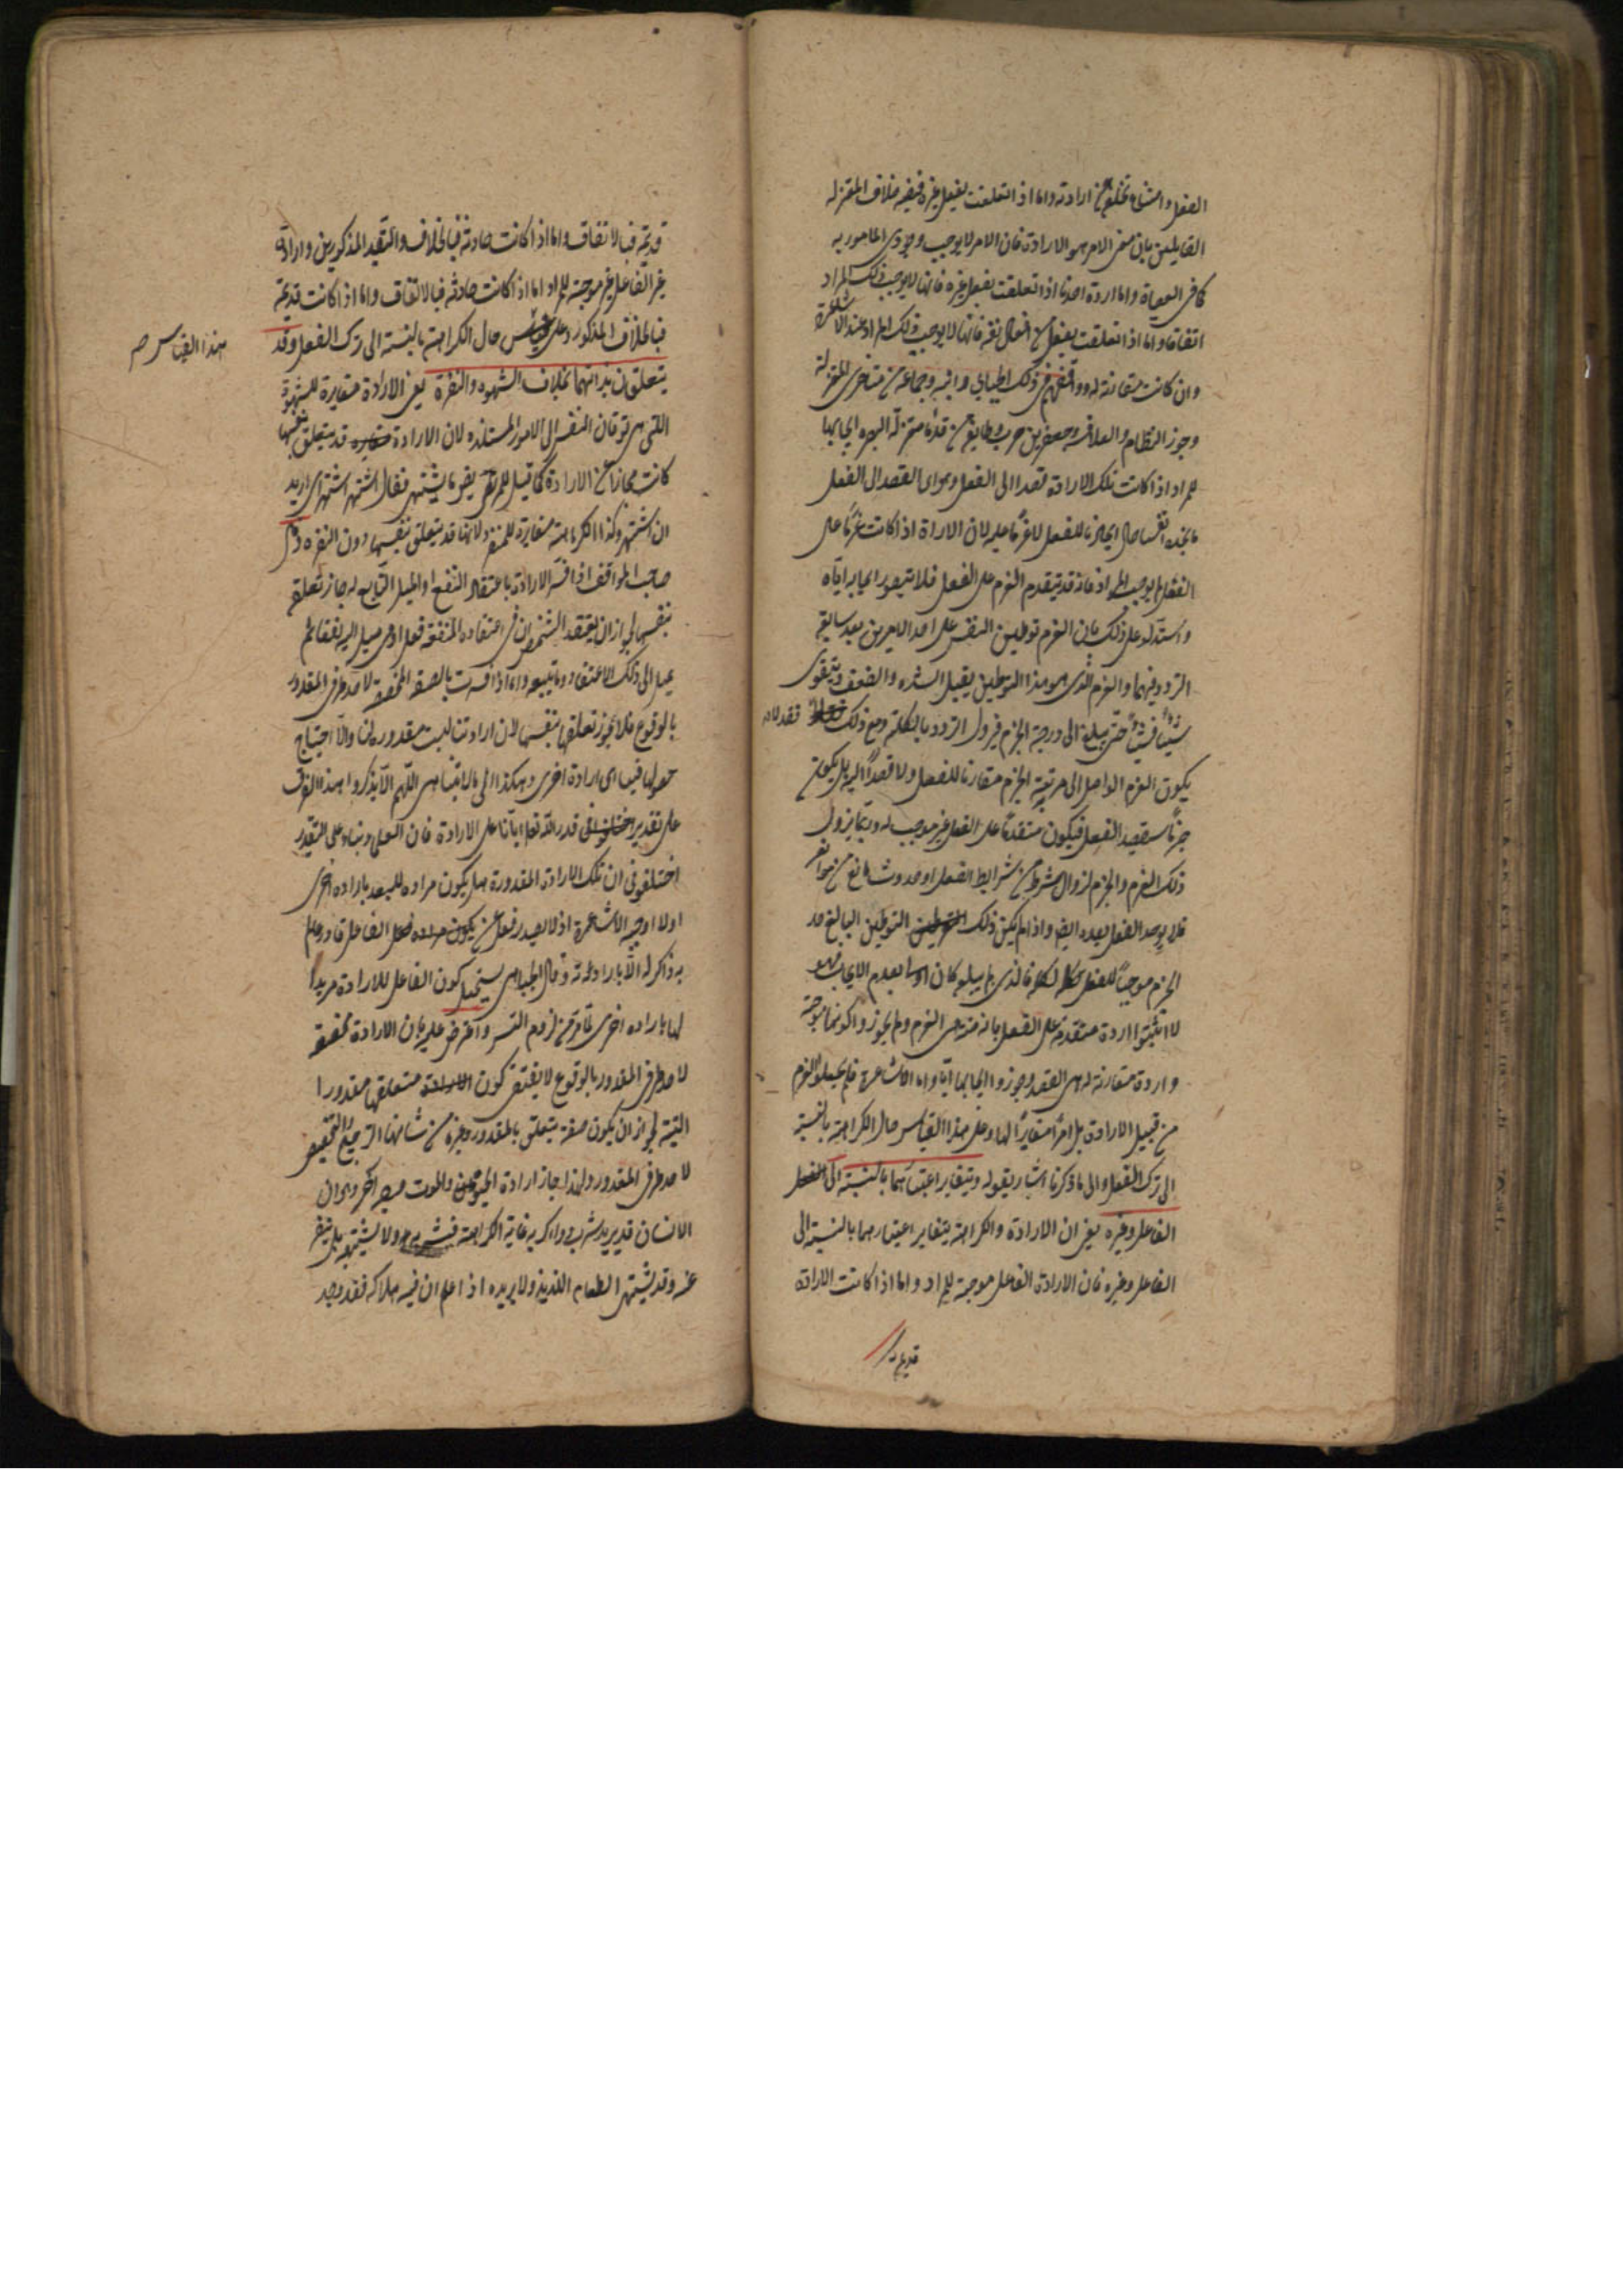 الفعل وامتناع تخلفه عن ارادته واما اذا تعلقت بفعل غيره ففيه خلاف المعتزلة
القايلين بان معنى الامر هو الارادة فان الامر لا يوجب وجودى المامور به
كما فى العصاة واما اردة احدنا اذا تعلقت بفعل غيره فانها لا يوجب ذلك المراد
اتفاقا واما اذا تعلقت بفعل من افعال نفسه فانها لا يوجب ذلك المراد عند الاشاعرة
وان كانت مقارنة له ووافقهم فى ذلك الجبايى وابنه وجماعة من متاخرى المعتزلة
وجوز النظام والعلاف وجعفر بن حرب وطايفة من قدماء معتزلة البصره ايجابها
للمراد اذا كانت تلك الارادة قصدا الى الفعل وهو اى القصد الى الفعل
ما نجده من انفسنا حال ايجادنا للفعل لا عزما عليه لان الارادة اذا كانت عزما على
الفعل لم يوجب المراد فانه قد يتقدم العزم على الفعل فلا يتصور ايجابه اياه
واستدلوا على ذلك بان العزم توطين النفس على احد الامرين بعد سابقة
التردد فيهما والعزم الذى هو هذا التوطين يقبل الشده والضعف ويتقوى
شيئا فشيئا حتى يبلغ الى درجة الجزم فيزول التردد بالكلية ومع ذلك فقد لا
يكون العزم الواصل الى مرتبة الجزم مقارنا للفعل ولا قصدا اليه بل يكون
جزما سيقصد الفعل فيكون متقدما على الفعل غير موجب له وربما يزول
ذلك العزم والجزم لزوال شرط من شرايط الفعل او حدوث مانع من موانعه
فلا يوجد الفعل بعده ايضا واذا لم يكن ذلك التوطين البالغ حد
الجزم موجبا للفعل فالذى لم يبلغه كان بعدم الايجاب فهو
لا اثبتوا اردة متقدمة على الفعل بازمنة هى العزم ولم يجوزوا كونها موجبة
واردة مقارنة له هى القصد وجوزوا ايجابها اياه واما الاشاعرة فلم يجعلوا العزم
من قبيل الارادة بل امرا مغايرا لها وعلى هذا القياس حال الكراهة بالنسبة
الى ترك الفعل والى ما ذكرنا اشار بقوله ويتغاير اعتبارهما بالنسبة الى
الفاعل وغيره يعنى ان الارادة والكراهة يتغاير اعتبارهما بالنسبة الى
الفاعل وغيره فان الارادة الفاعل موجبة للمراد واما اذا كانت الارادة
قديمة
قديمة فبالاتفاق واما اذا كانت حادثة فبالخلاف والتقييد المذكورين وارادة
غير الفاعل غير موجبة للمراد اما اذا كانت حادثة فبالاتفاق واما اذا كانت قديمة
فبالخلاف المذكور وعلى حال الكراهة بالنسبة الى ترك الفعل وقد
هذا القياس صح
يتعلقان بذاتهما بخلاف الشهوة والنفرة يعنى الارادة مغايرة للشهوة
التى هى توقان النفس الى الامور المستلذه لان الارادة قد يتعلق بنفسها
كانت مجازا عن الارادة كما قيل للمريض ما يشتهى فقال اشتهى اى اريد
ان اشتهى وكذا الكراهة مغايرة للنفرة لانها قد يتعلق بنفسها دون النفرة قال
صاحب المواقف اذا فسر الارادة باعتقاد النفع او الميل التابع له جاز تعلقها
بنفسها لجواز ان يعتقد الشخص ان فى اعتقاده لمنفعة فعل او فى ميل اليه نفعا ثم
يميل الى ذلك الاعتقاد وما يتبعه واما اذا فسرت بالصفة المخصصة لاحد طرفى المقدور
بالوقوع فلا يجوز تعلقها بنفسها لان ارادتنا ليست مقدورة لنا والا احتياج
حصولها فينا الى ارادة اخرى وهكذا الى ما لا يتناهى اللهم الا ان يذكروا هذا الفرق
على تقدير قدر الله تعالى ايانا على الارادة فان العلماء بناء على التقدير
اختلفوا فى ان تلك الارادة المقدورة هل يكون مرادة للعبد بارادة اخرى
اولا اوجبه الاشاعرة اذ لا يصدر فعل عن الفاعل قادر عالم
به ذاكر له الا بارادته وقال الجبايى يستحيل كون الفاعل للارادة مريدا
لها بارادة اخرى لما مر من لزوم التسلسل واعترض عليه بان الارادة مخصصة
لاحد طرفى المقدور بالوقوع لا يقتضى كون متعلقها مقدورا
البتة لجواز ان يكون صفة يتعلق بالمقدور وغيره من شانها الترجيح والتخصيص
لاحد طرفى المقدور ولهذا جاز ارادة الحيوة والموت وجه اخر وهو ان
الانسان قد يريد شرب دواء كريه غاية الكراهة ولا يشتهيه بل ينفر
عنه وقد يشتهى الطعام اللذيذ ولا يريده اذا علم ان فيه هلاكه فقد وجد